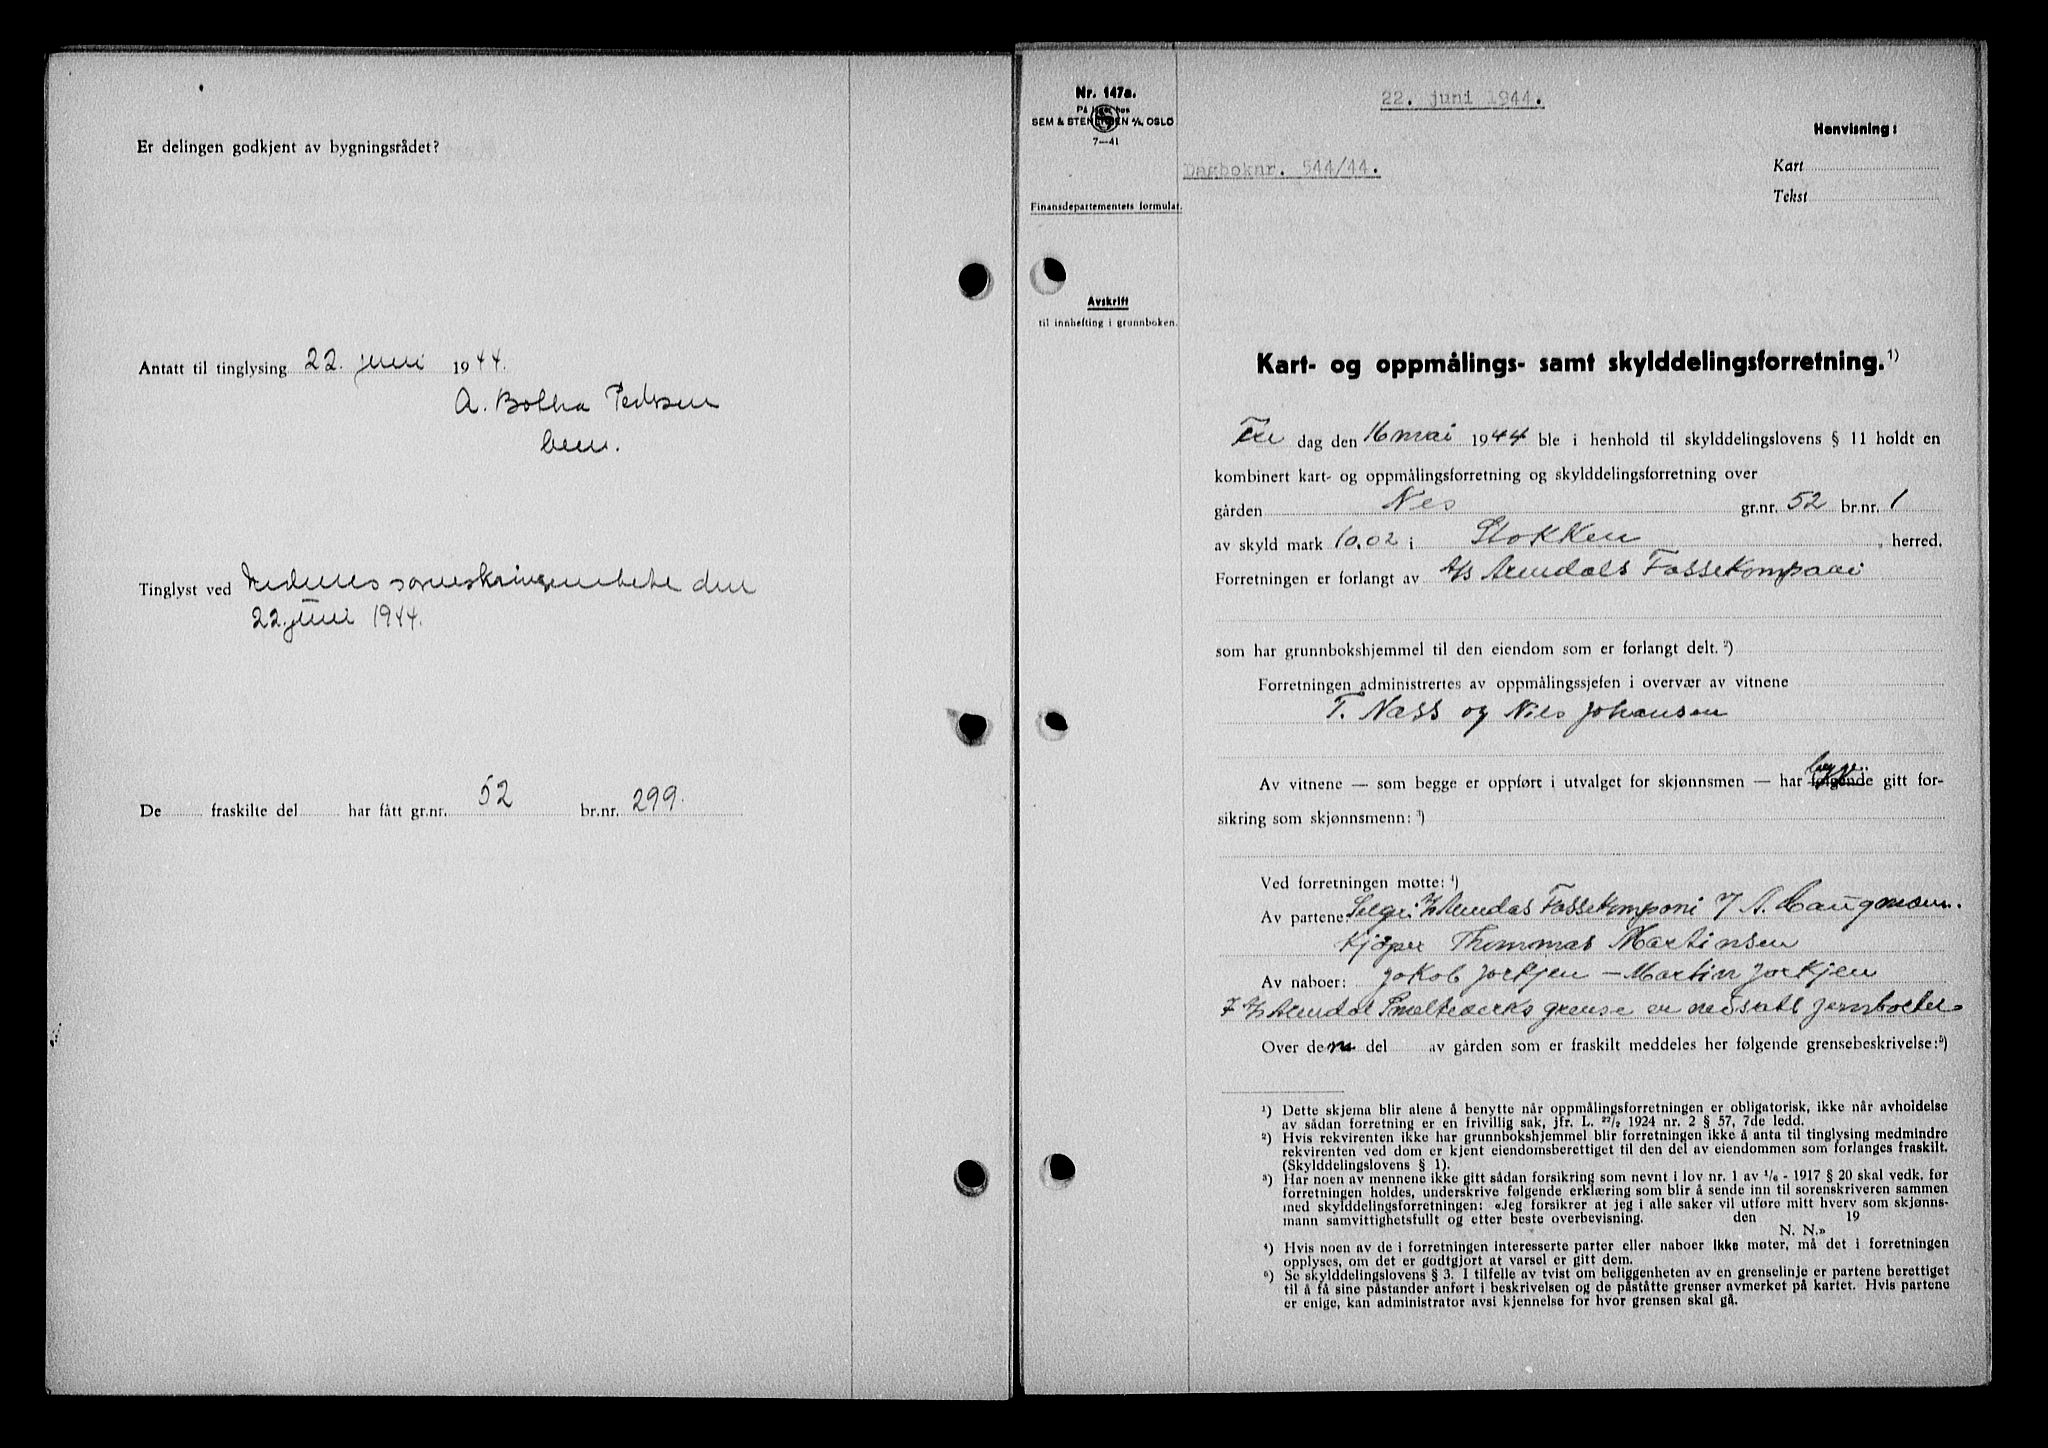 Er delingen godkjent av bygningsrådet?
Antatt til tinglysing 22. juni 1944.
A. Bolha Pedersen
Tinglyst ved Nedenes sorenskriverembete den
22. juni 1944.
De fraskilte del har fått gr.nr. 52 br.nr. 299.
Nr. 147a.
På lager hos
SEM & STENERSEN A/S, OSLO
7—41
Finansdepartementets formular.
Avskrift
til innhefting i grunnboken.
22. juni 1944.
Dagboknr. 544/44.
Henvisning:
Kart
Tekst
Kart- og oppmålings- samt skylddelingsforretning.¹)
dag den 16 mai 1944 ble i henhold til skylddelingslovens § 11 holdt en
kombinert kart- og oppmålingsforretning og skylddelingsforretning over
gården Nes gr.nr. 52 br.nr. 1
av skyld mark 10.02 i Stokken herred.
Forretningen er forlangt av A/S Arendals Fossekompani
som har grunnbokshjemmel til den eiendom som er forlangt delt.²)
Forretningen administrertes av oppmålingssjefen i overvær av vitnene
T. Næss og Nils Johansen
Av vitnene — som begge er oppført i utvalget for skjønnsmen — har begge følgende gitt for-
sikring som skjønnsmenn: ³)
Ved forretningen møtte: ⁴)
Av partene: Selger: A/S Arendals Fossekomponi v/ A. Haugmoen.
Kjøper Thommas Martinsen
Av naboer: Jakob Jorkjen — Martin Jorkjen
A/S Arendal Smelteverks grense er nedsatt jernbolter
Over den del av gården som er fraskilt meddeles her følgende grensebeskrivelse:⁵)
¹) Dette skjema blir alene å benytte når oppmålingsforretningen er obligatorisk, ikke når avholdelse
av sådan forretning er en frivillig sak, jfr. L. ²²/₂ 1924 nr. 2 § 57, 7de ledd.
²) Hvis rekvirenten ikke har grunnbokshjemmel blir forretningen ikke å anta til tinglysing medmindre
rekvirenten ved dom er kjent eiendomsberettiget til den del av eiendommen som forlanges fraskilt.
(Skylddelingslovens § 1).
³) Har noen av mennene ikke gitt sådan forsikring som nevnt i lov nr. 1 av ¹/₆ - 1917 § 20 skal vedk. før
forretningen holdes, underskrive følgende erklæring som blir å sende inn til sorenskriveren sammen
med skylddelingsforretningen: «Jeg forsikrer at jeg i alle saker vil utføre mitt hverv som skjønns-
mann samvittighetsfullt og etter beste overbevisning. den 19
N. N.»
⁴) Hvis noen av de i forretningen interesserte parter eller naboer ikke møter, må det i forretningen
opplyses, om det er godtgjort at varsel er gitt dem.
⁵) Se skylddelingslovens § 3. I tilfelle av tvist om beliggenheten av en grenselinje er partene berettiget
til å få sine påstander anført i beskrivelsen og de påståtte grenser avmerket på kartet. Hvis partene
er enige, kan administrator avsi kjennelse for hvor grensen skal gå.